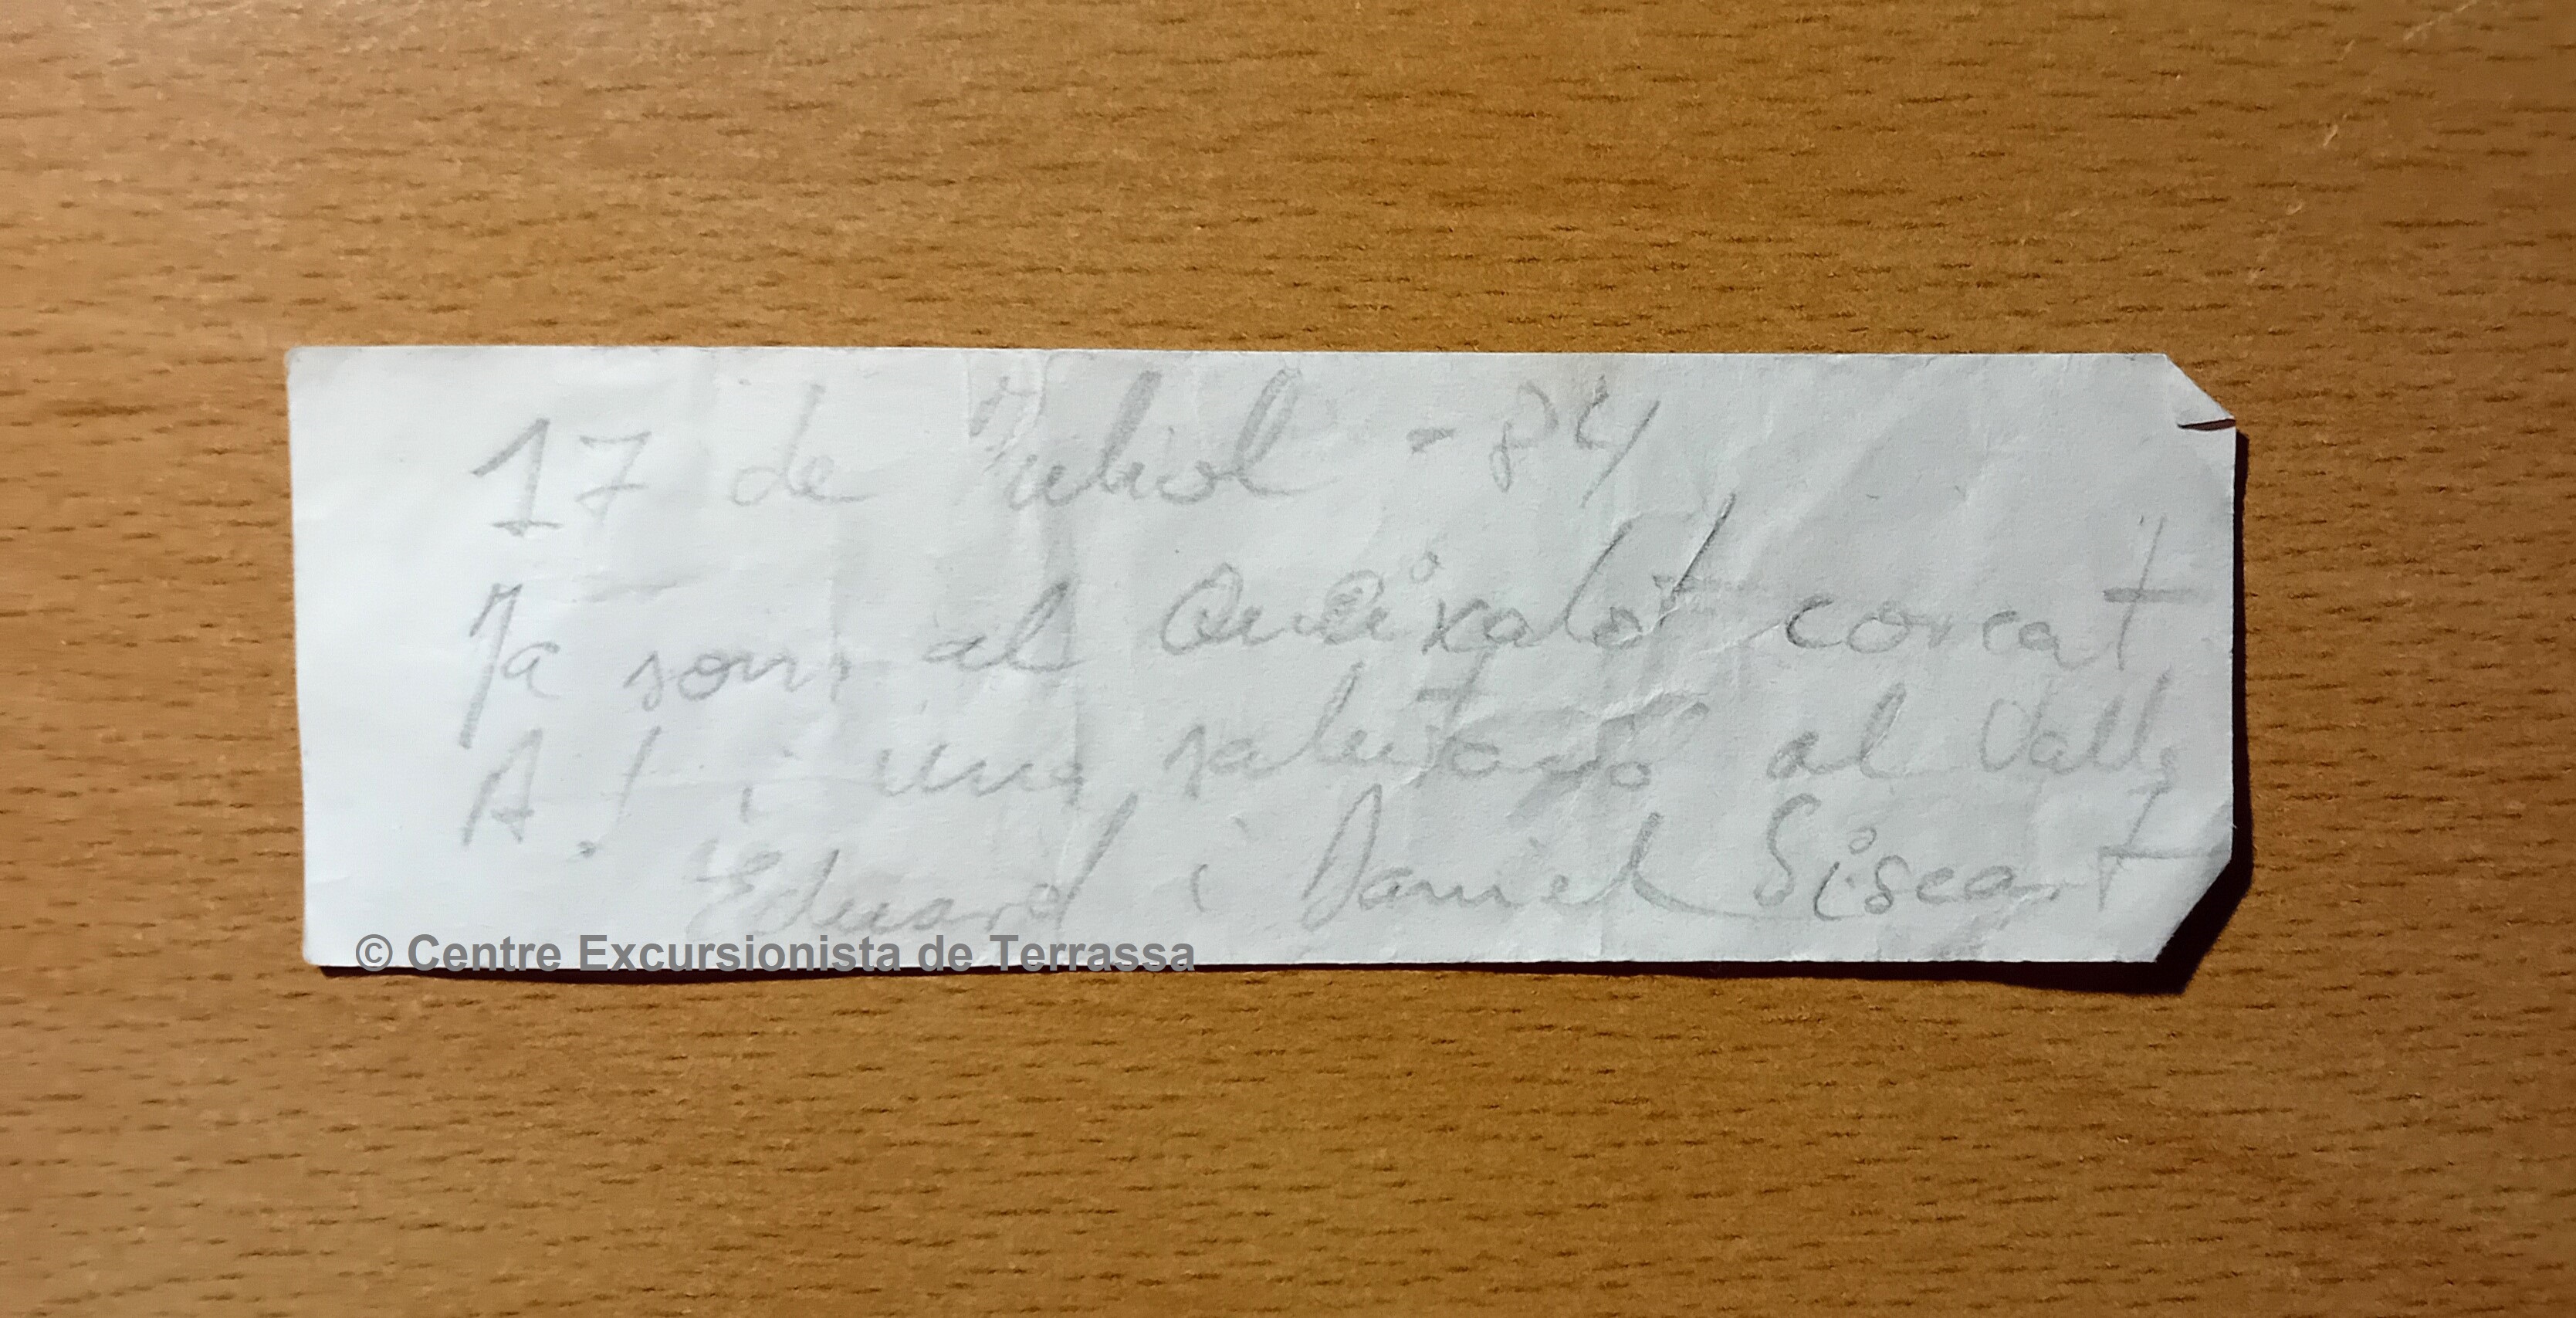 17 de Juliol - 84
Ja som al Queixalot corcat
A! i una salutació al Valls
Eduard i Daniel Siscart
© Centre Excursionista de Terrassa